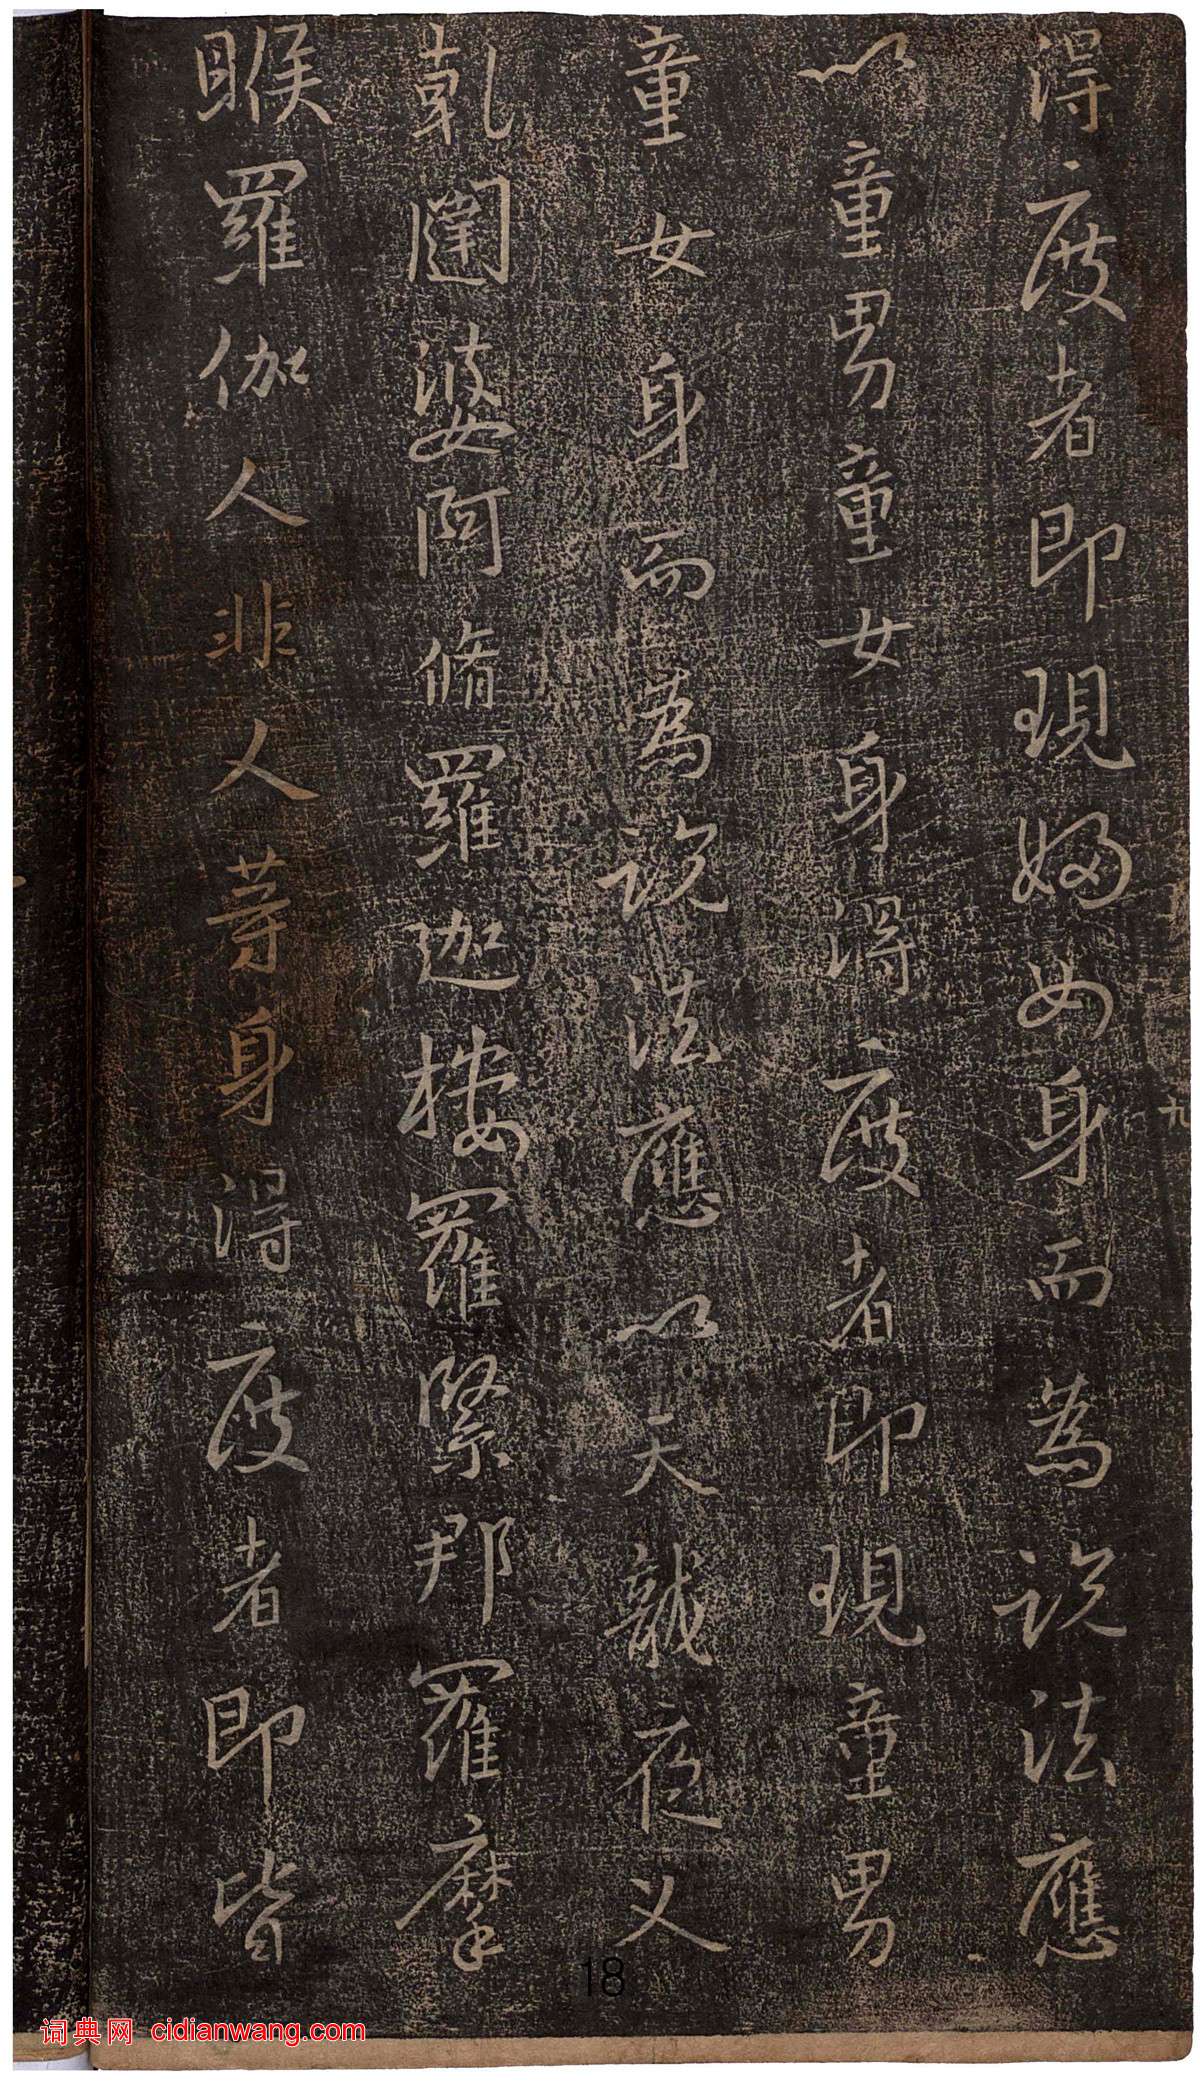 得度者即現婦女身而為說法應
以童男童女身得度者即現童男
童女身而為說法應以天龍夜叉
乾闥婆阿脩羅迦樓羅緊那羅摩
睺羅伽人非人等身得度者即皆
九
18
词典网 cidianwang.com